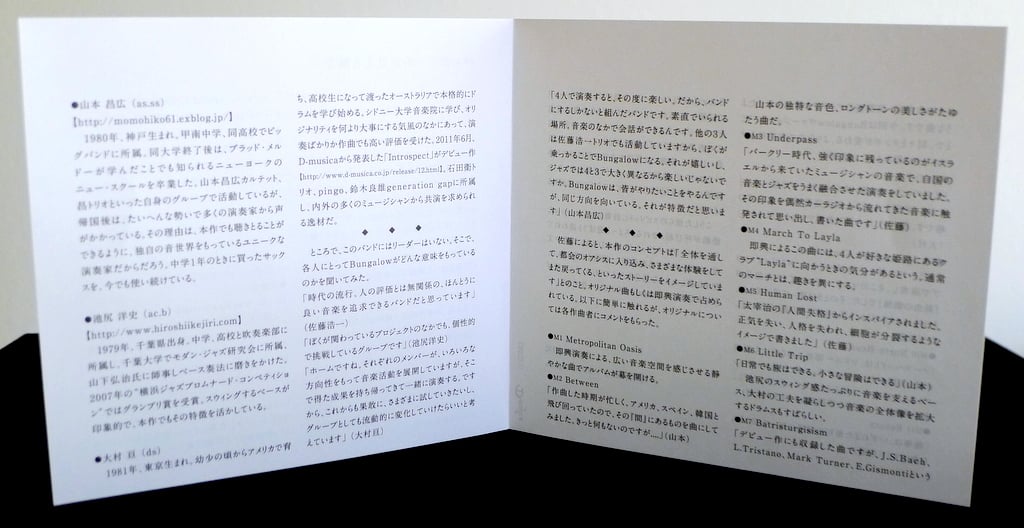 ●山本 昌広 (as,ss)
【http://momohiko61.exblog.jp/】
1980年、神戸生まれ。甲南中学、同高校でビッ
グバンドに所属。同大学終了後は、ブラッド・メル
ドーが学んだことでも知られるニューヨークの
ニュー・スクールを卒業した。山本昌広カルテット、
昌トリオといった自身のグループで活動しているが、
帰国後は、たいへんな勢いで多くの演奏家から声
がかかっている。その理由は、本作でも聴きとることが
できるように、独自の音世界をもっているユニークな
演奏家だからだろう。中学1年のときに買ったサック
スを、今でも使い続けている。
●池尻 洋史 (ac.b)
【http://www.hiroshiikejiri.com】
1979年、千葉県出身。中学、高校と吹奏楽部に
所属し、千葉大学でモダン・ジャズ研究会に所属、
山下弘治氏に師事しベース奏法に磨きをかけた。
2007年の"横浜ジャズプロムナード・コンペティショ
ン"ではグランプリ賞を受賞。スウィングするベースが
印象的で、本作でもその特徴を活かしている。
●大村 亘 (ds)
1981年、東京生まれ。幼少の頃からアメリカで育
ち、高校生になって渡ったオーストラリアで本格的にド
ラムを学び始める。シドニー大学音楽院に学び、オリ
ジナリティを何より大事にする気風のなかにあって、演
奏ばかりか作曲でも高い評価を受けた。2011年6月、
D-musicaから発表した「Introspect」がデビュー作
【http://www.d-musica.co.jp/release/12.html】。石田衛ト
リオ、pingo、鈴木良雄generation gapに所属
し、内外の多くのミュージシャンから共演を求められ
る逸材だ。
◆ ◆ ◆
ところで、このバンドにはリーダーはいない。そこで、
各人にとってBungalowがどんな意味をもっている
のかを聞いてみた。
「時代の流行、人の評価とは無関係の、ほんとうに
良い音楽を追求できるバンドだと思っています」
(佐藤浩一)
「ぼくが関わっているプロジェクトのなかでも、個性的
で挑戦しているグループです」(池尻洋史)
「ホームですね。それぞれのメンバーが、いろいろな
方向性をもって音楽活動を展開していますが、そこ
で得た成果を持ち帰ってきて一緒に演奏する。です
から、これからも果敢に、さまざまに試していきたいし、
グループとしても流動的に変化していけたらいいと考
えています」(大村亘)
「4人で演奏すると、その度に楽しい。だから、バンド
にするしかないと組んだバンドです。素直でいられる
場所、音楽のなかで会話ができるんです。他の3人
は佐藤浩一トリオでも活動していますから、ぼくが
乗っかることでBungalowになる。それが嬉しいし、
ジャズでは4と3で大きく異なるから楽しいじゃないで
すか。Bungalowは、皆がやりたいことをやるんです
が、同じ方向を向いている。それが特徴だと思いま
す」(山本昌広)
◆ ◆ ◆
佐藤によると、本作のコンセプトは「全体を通し
て、都会のオアシスに入り込み、さまざまな体験をして
また戻ってくる、といったストーリーをイメージしていま
す」とのこと。オリジナル曲もしくは即興演奏で占めら
れている。以下に簡単に触れるが、オリジナルについ
ては各作曲者にコメントをもらった。
●M1 Metropolitan Oasis
即興演奏による、広い音楽空間を感じさせる静
やかな曲でアルバムが幕を開ける。
●M2 Between
「作曲した時期が忙しく、アメリカ、スペイン、韓国と
飛び回っていたので、その『間』にあるものを曲にして
みました。きっと何もないのですが……」(山本)
山本の独特な音色、ロングトーンの美しさがたゆ
たう曲だ。
●M3 Underpass
「バークリー時代、強く印象に残っているのがイスラ
エルから来ていたミュージシャンの音楽で、自国の
音楽とジャズをうまく融合させた演奏をしていました。
その印象を偶然カーラジオから流れてきた音楽に触
発されて思い出し、書いた曲です」(佐藤)
●M4 March To Layla
即興によるこの曲には、4人が好きな姫路にあるク
ラブ"Layla"に向かうときの気分があるという。通常
のマーチとは、趣きを異にする。
●M5 Human Lost
「太宰治の『人間失格』からインスパイアされました。
正気を失い、人格を失われ、細胞が分裂するような
イメージで書きました」(佐藤)
●M6 Little Trip
「日常でも旅はできる。小さな冒険はできる」(山本)
池尻のスウィング感たっぷりに音楽を支えるベー
ス、大村の工夫を凝らしつつ音楽の全体像を拡大
するドラムスもすばらしい。
●M7 Batristurgisism
「デビュー作にも収録した曲ですが、J.S.Bach、
L.Tristano、Mark Turner、E.Gismontiという